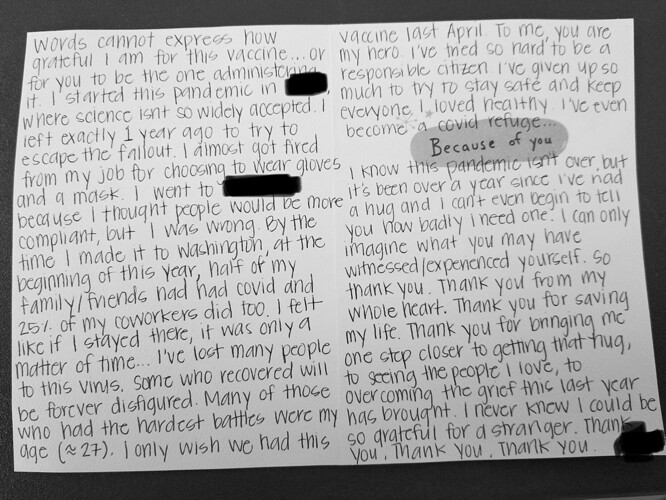 words cannot express how
grateful I am for this vaccine... or
for you to be the one administering
it. I started this pandemic in
where science isnt so widely accepted. I
left exactly 1 year ago to try to
escape the fallout. I almost got fired
from my job for choosing to wear gloves
and a mask. I went to
because I thought people would be more
compliant, but I was wrong. By the
time I made it to Washington, at the
beginning of this year, half of my
family/friends had had covid and
25% of my coworkers did too. I felt
like if I stayed there, it was only a
matter of time... I've lost many people
to this virus. Some who recovered will
be forever disfigured. Many of those
who had the hardest battles were my
age (≈27). I only wish we had this
vaccine last April. To me, you are
my hero. I've tried so hard to be a
responsible citizen. I've given up so
much to try to stay safe and keep
everyone I loved healthy. I've even
become a covid refuge...
Because of you
I know this pandemic isn't over, but
it's been over a year since I've had
a hug and I can't even begin to tell
you how badly I need one. I can only
imagine what you may have
witnessed/experienced yourself. So
thank you. Thank you from my
whole heart. Thank you for saving
my life. Thank you for bringing me
one step closer to getting that hug,
to seeing the people I love, to
overcoming the grief this last year
has brought. I never knew I could be
so grateful for a stranger. Thank
you, Thank you, Thank you.